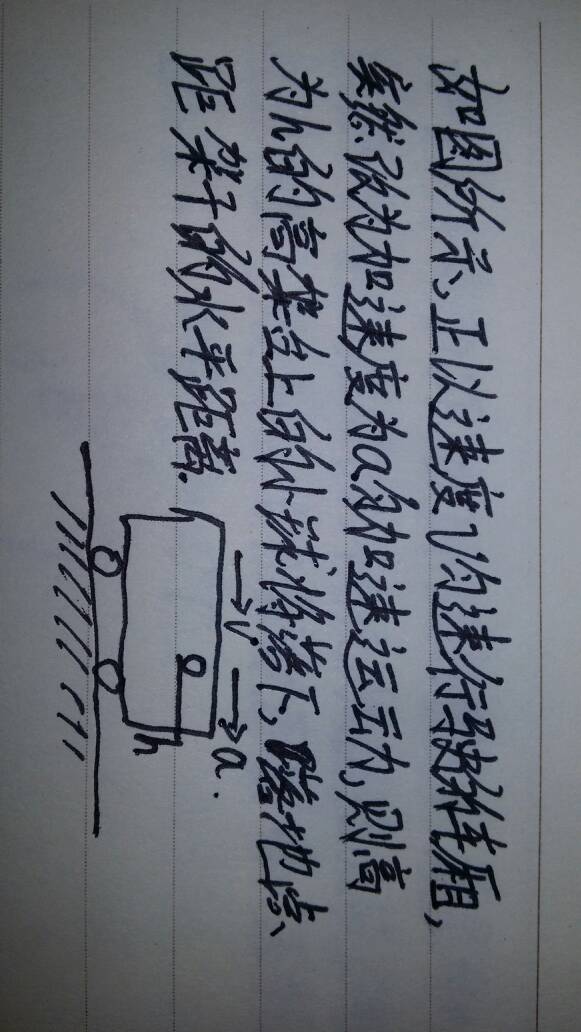 如图所示，正以速度V匀速行驶的车厢，
突然改为加速度为a的加速运动，则高
为h的高架台上的小球将落下，落地点
距架子的水平距离.
V.
a.
h